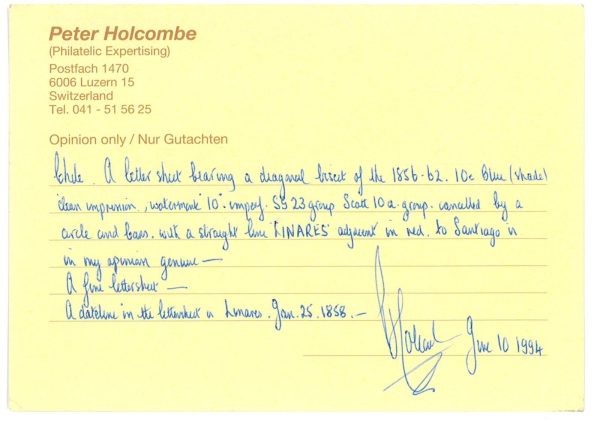 Peter Holcombe
(Philatelic Expertising)
Postfach 1470
6006 Luzern 15
Switzerland
Tel. 041 - 51 56 25
Opinion only / Nur Gutachten
Chile. A letter sheet bearing a diagonal bisect of the 1856-62. 10c blue (shade)
clean impression, watermark "10". imperf. SG 23 group Scott 10a. group. cancelled by a
circle and bars. with a straight line "LINARES" adjacent in red. to Santiago is
in my opinion genuine —
A fine lettersheet —
A dateline in the lettersheet is Linares. Jan. 25. 1858. —
June 10 1994